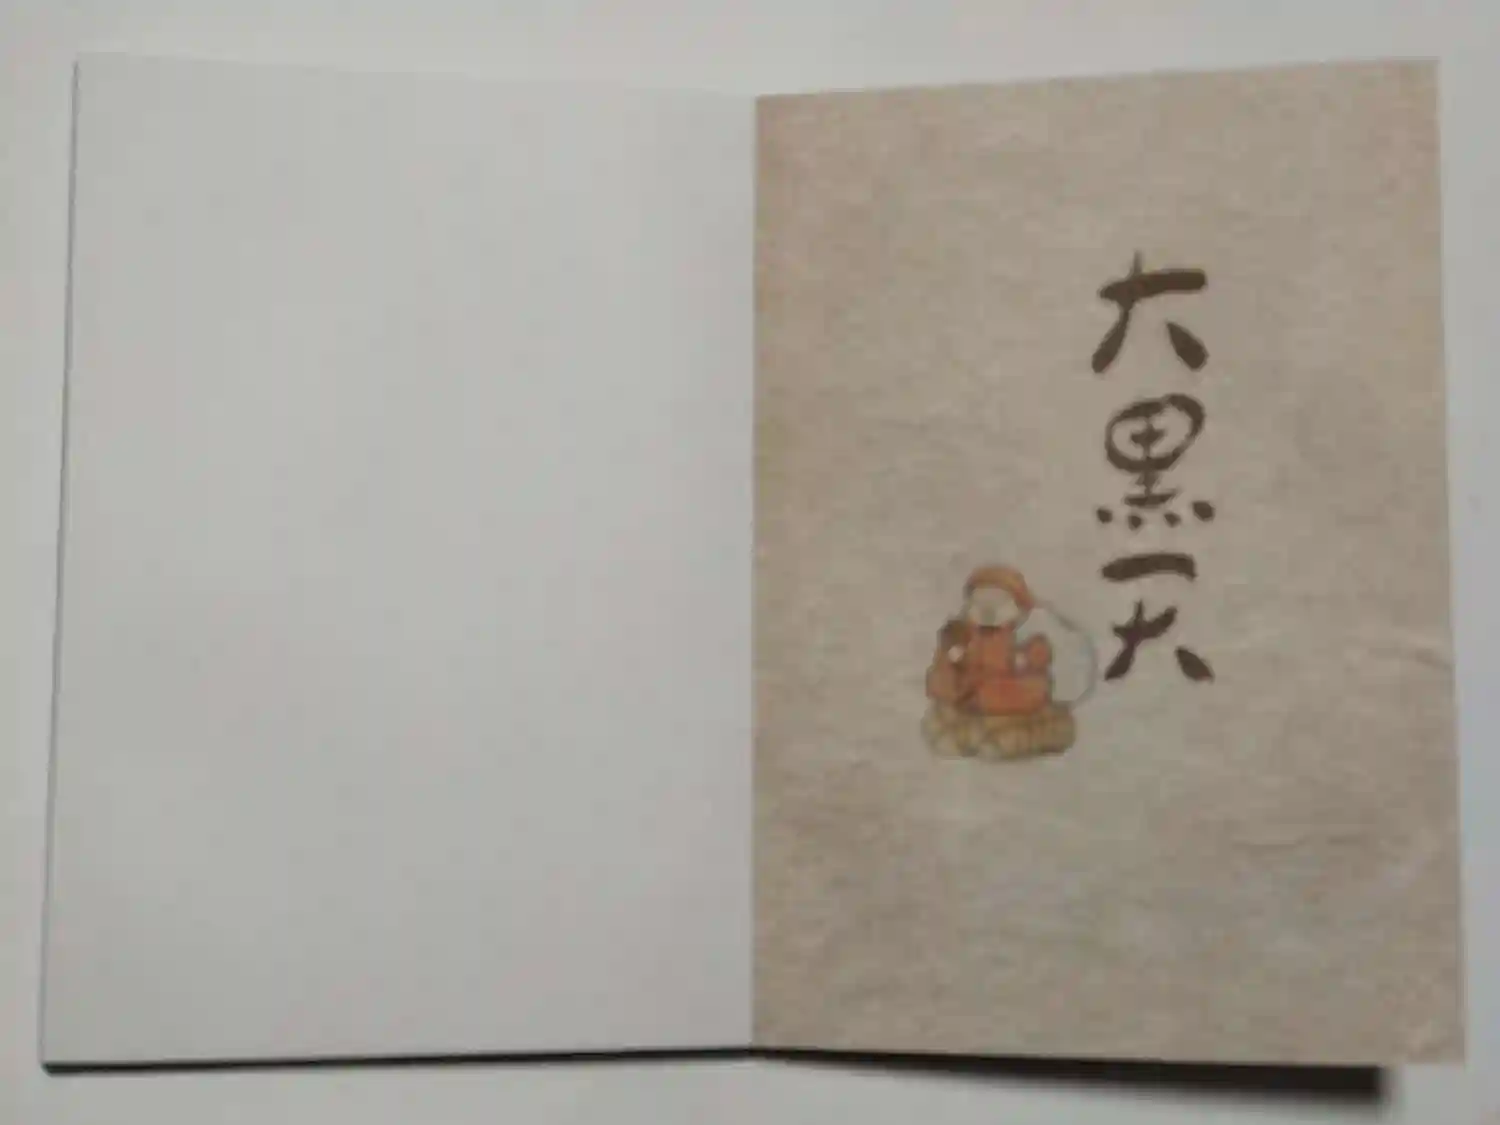 大黒天